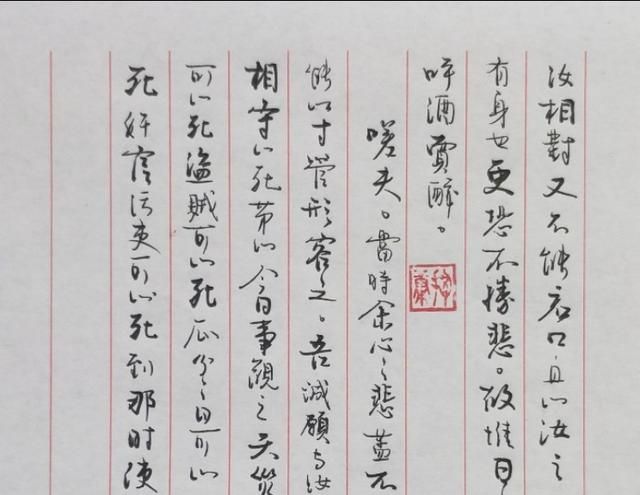 汝相對又不能启口且以汝之
有身也更恐不勝悲。故惟日
呼酒買醉。
嗟夫。當時余心之悲蓋不
能以寸管形容之。吾诚願与汝
相守以死第以今日事觀之天災
可以死盜賊可以死瓜分之日可以
死奸官污吏可以死到那时使